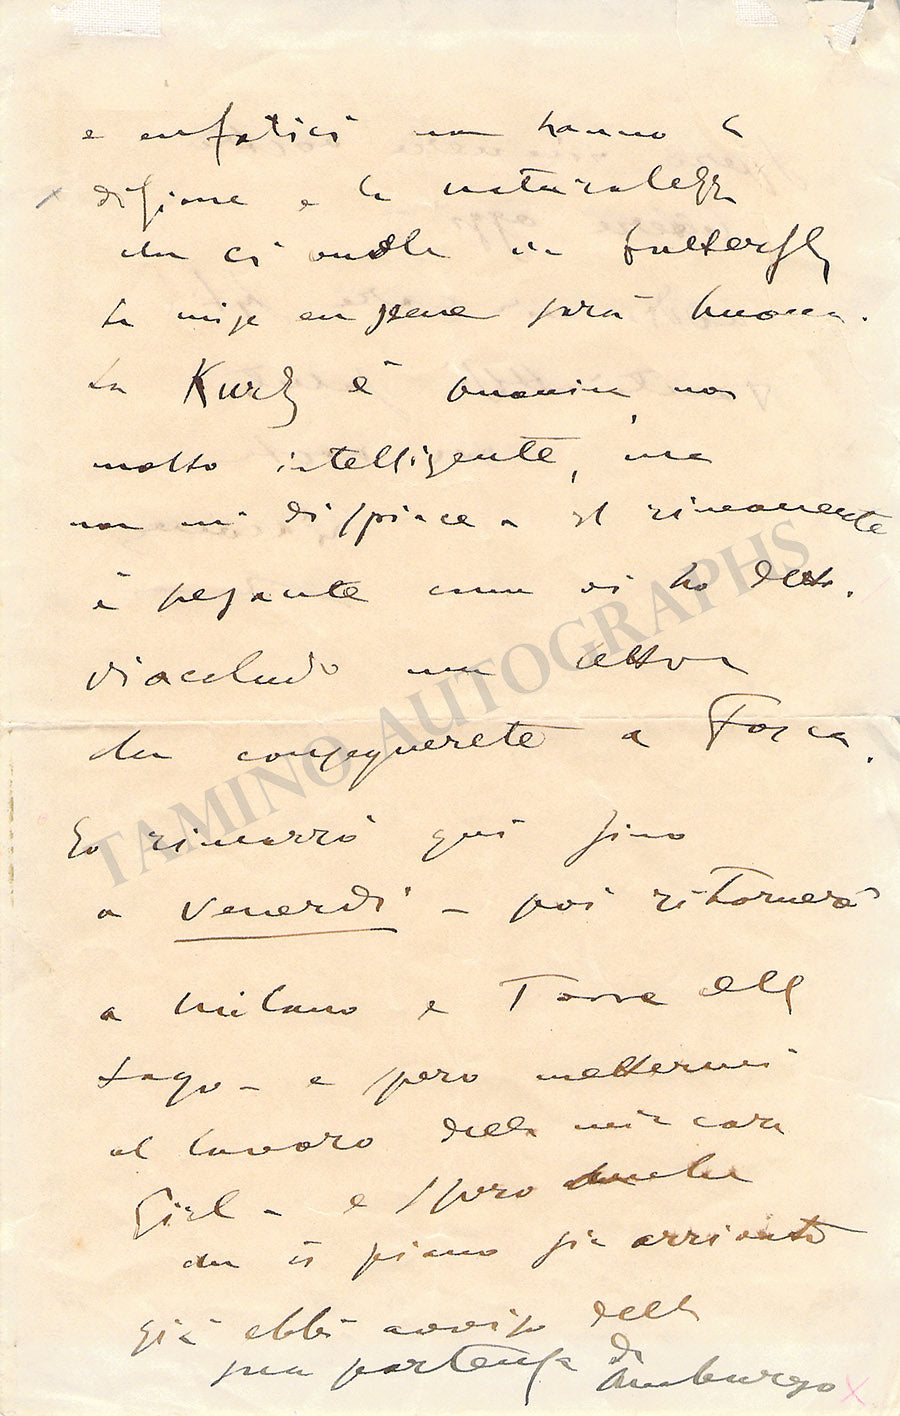 e enfatici non hanno la
dizione e la naturalezza
che ci vuole in Butterfly
La mise en scene sarà buona.
La Kurz è buonina, non
molto intelligente, ma
non mi dispiace - Il rimanente
è pesante come vi ho detto.
Diacchido un attore
che conseguerete a Tosca.
Io rimarrò qui fino
a Venerdi - poi ritornerò
a Milano e Torre del
Lago - e spero mettermi
al lavoro della mia cara
Girl - e spero anche
che il piano sia arrivato
già ebbi avviso della
sua partenza di
Amburgo
TAMINO AUTOGRAPHS